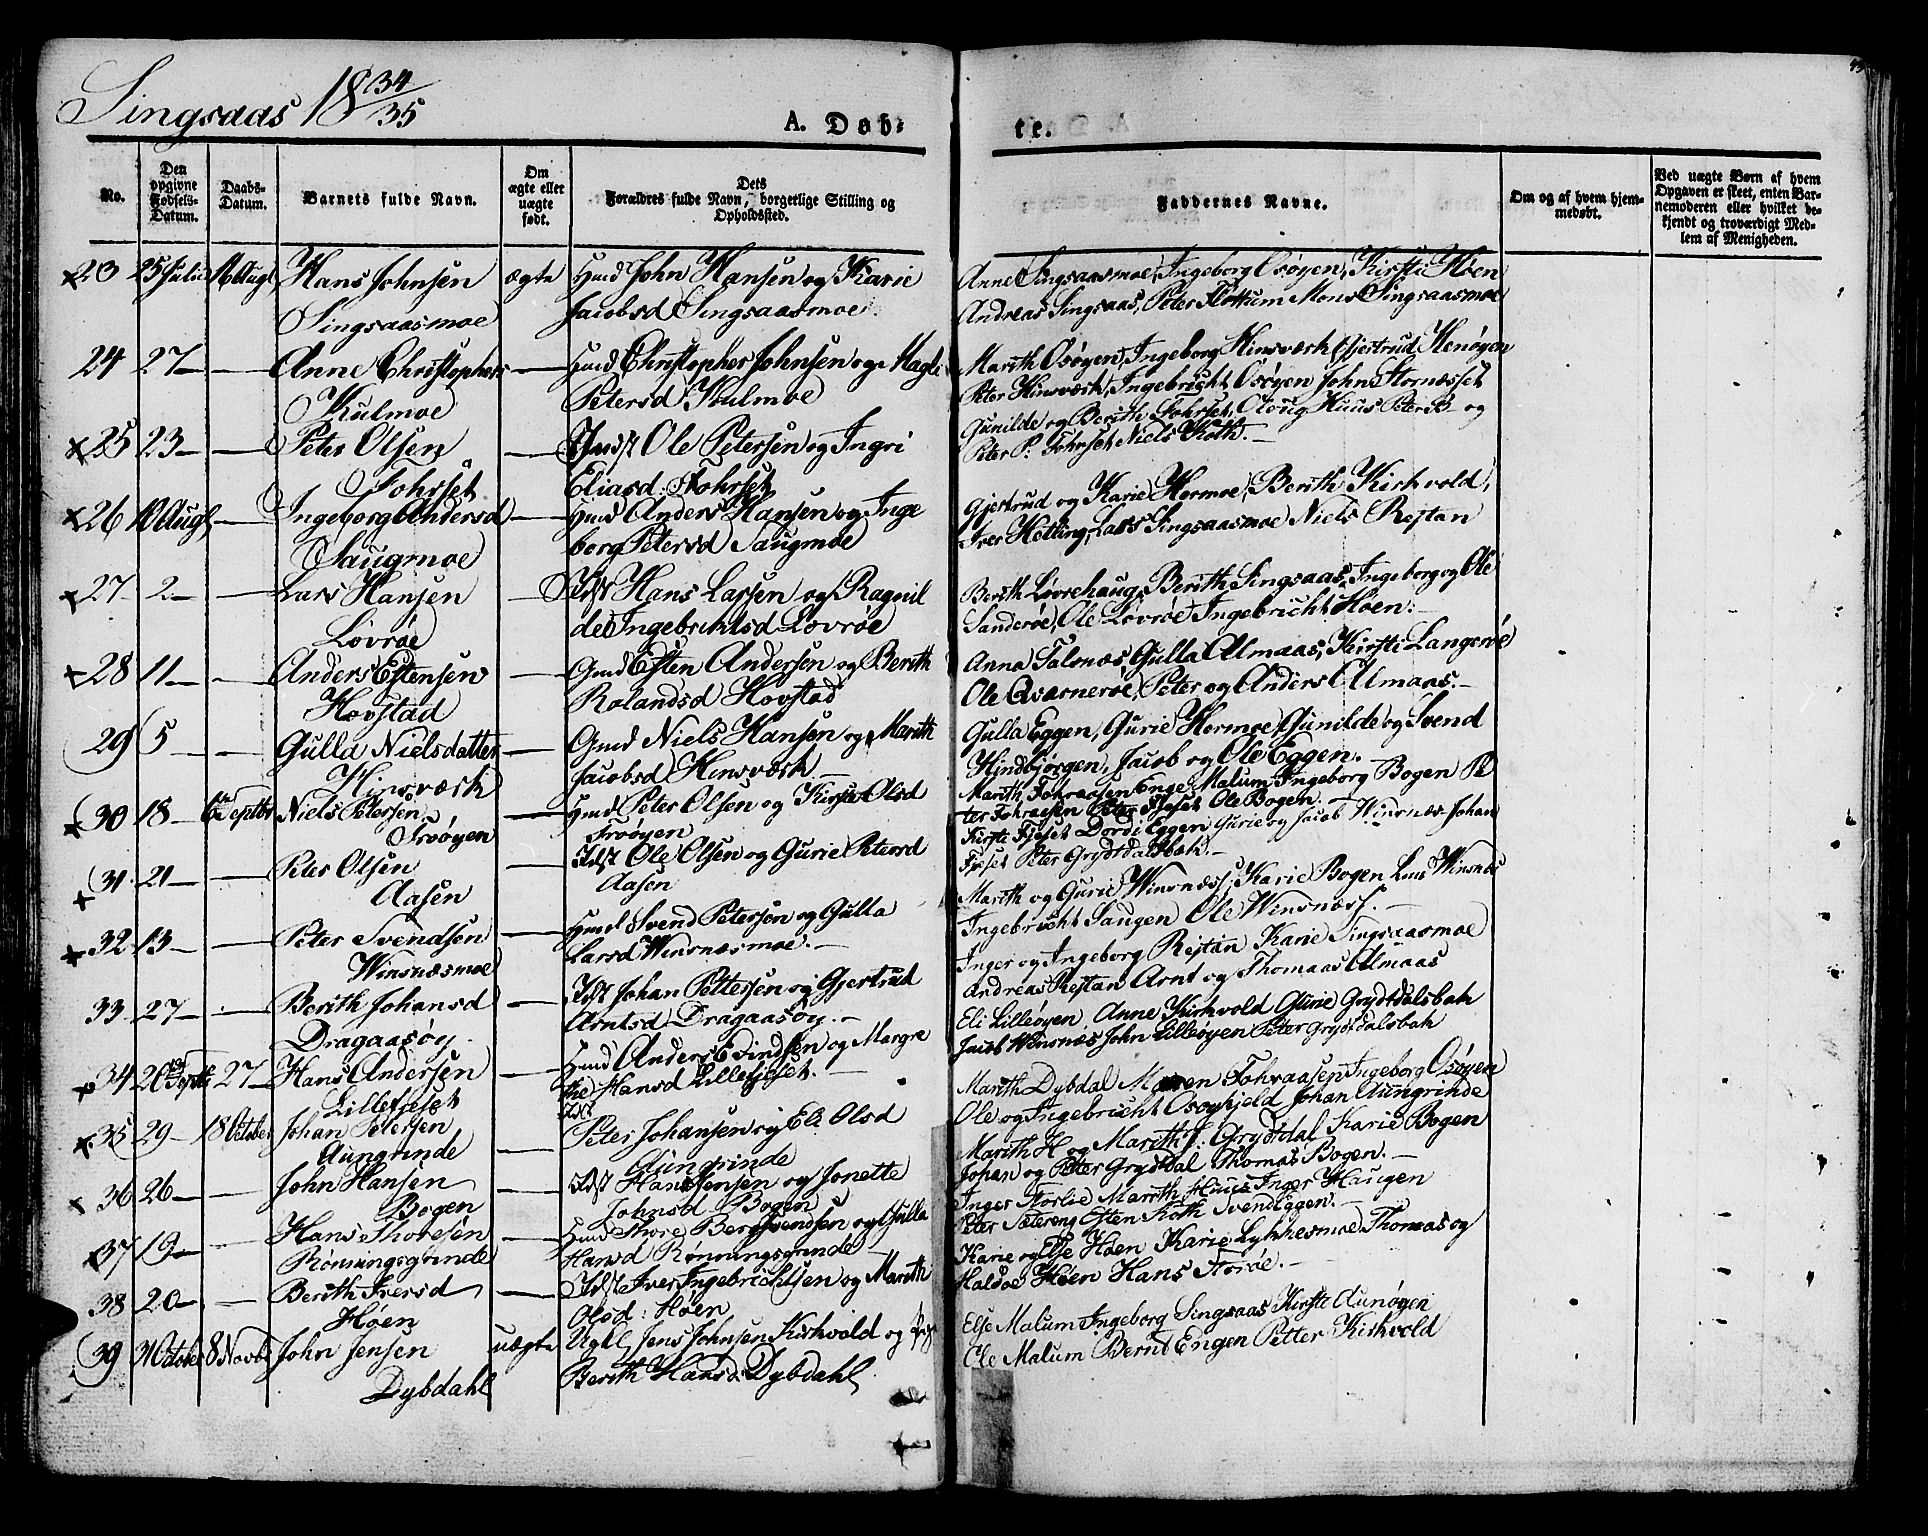 Singsaas 18 34/35
A. Døb-
te.
No.
Den opgivne Fødsels-Datum.
Daabs-Datum.
Barnets fulde Navn.
Om ægte eller uægte født.
Dets Forældres fulde Navn, borgerlige Stilling og Opholdssted.
Faddernes Navne.
Om og af hvem hjem-medøbt.
Ved uægte Børn af hvem Opgaven er skeet, enten Bar-nemoderen eller hvilket be-kjendt og troværdigt Med-lem af Menigheden.
23 25 Julii Augs Hans Johnsen ægte Hmd John Hansen og Karie
Singsaasmoe Jacobsd Singsaasmoe
Anne Singsaasmoe, Ingeborg Osøyen, Kirsti Høen
Andreas Singsaas, Peter Flottum Mons Singsaasmoe
24 27 — — Anne Christophers — Hmd Christopher Johnsen og Magli
Kulmoe Petersd Kulmoe
Marith Osøyen, Ingeborg Hinsværk Gjertrud Henøyen
Peter Hinsværk, Ingebricht Osøyen John Stornæsset
25 23 — — Peter Olsen — Ole Petersen og Ingri
Fohrset Eliasd: Fohrset
Gunilde og Berith Fohrset, Oloug Huus Peter B og
Peter P: Fohrset Niels Koth.—
26 10 Augs — Ingeborg Andersd — Hmd Anders Hansen og Inge
Saugmoe borg Petersd Saugmoe
Gjertrud og Karie Hermoe, Berith Kirkvold,
Iver Hetling, Lars Singsaasmoe Niels Rejtan
27 2 — — Lars Hansen — Idst Hans Larsen og Ragnil
Løvrøe de Ingebriktsd Løvrøe
Berith Løvrehaug, Berith Singsaas, Ingeborg og Ole
Sanderøe, Ole Løvrøe Ingebricht Hoen.—
28 11 — — Anders Estensen — Gmd Esten Andersen og Berith
Hovstad Rolandsd Hovstad
Anna Talsnæs, Gulla Almaas, Kirsti Langerøe
Ole Qværnerøe, Peter og Anders Almaas.—
29 5 — Gulla Nielsdatter — Gmd Niels Hansen og Marith
Hinsværk Jacobsd Hinsværk —
Gulla Eggen, Gurie Hermoe, Gunilde og Svend
Hindbjørgen, Jacob og Ole Eggen.—
30 18 — 6 Septbr Niels Petersen — Hmd Peter Olsen og Kirste Olsd
Frøøyen Frøøyen
Marith Fohraasen Enge Malum, Ingeborg Bogen Pe
ter Fohraasen Peter Fjeset Ole Bogen.
31 21 — — Peter Olsen — Idst Ole Olsen og Gurie Petersd
Aasen Aasen
Kirste Fjeset Dordi Eggen Gurie og Jacob Winsnæs Johan
Fjeset Peter Grydtdalsbak.—
32 13 — — Peter Svendsen — Hmd Svend Petersen og Gulla
Winsnæsmoe Larsd Winsnæsmoe.—
Marith og Gurie Winsnæss, Karie Bogen Lars Winsnæs
Ingebricht Saugen Ole Winsnæss.—
33 27 — — Berith Johansd — Idst Johan Pettersen og Gjertrud
Dragaasøy Arntsd Dragaasøy.—
Inger og Ingeborg Rejtan Karie Singsaasmoe
Andreas Rejtan Arnt og Thomaas Almaas
34 20 Septb 27 — Hans Andersen — Hmd Anders Eindsen og Margre
Lillefjeset the Hansd Lillefjeset.—
Eli Lilleøyen, Anne Kirkvold Gurie Grydtdalsbak
Jacob Winsnæs John Lilleøyen Peter Grydtdalsbak
35 29 — 18 October Johan Petersen — Idst Peter Johansen og Eli Olsd
Aungrinde Aungrinde
Marith Dybdal Maren Fohraasen, Ingeborg Osøyen
Ole og Ingebricht Osøykjeld Johan Aungrinde
36 26 — — John Hansen — Idst Hans Jensen og Jonette
Bogen Johnsd Bogen
Marith H og Marith J: Grydtdal Karie Bogen
Johan og Peter Grydtdal Thomas Bogen.—
37 19 — — Hans Thoresen — Hmd Thore Bersvendsen og Gulla
Rønningsgrinde Hansd Rønningsgrinde —
Inger Storlie Marith Huus Inger Haugen
Peter Sætereng Esten Koth Svend Eggen.—
38 20 — — Berith Iversd — Idst Iver Ingebrichtsen og Marith
Høen Olsd: Høen
Karie og Else Høen Karie Lykkesmoe, Thomas og
Haldoe Høen Hans Storøe.—
39 31 October 8 Novbr John Jensen uægte Ugkl Jens Johnsen Kirkvold og Pige
Dybdahl Berith Hansd: Dybdahl
Else Malum Ingeborg Singsaas Kirste Aunøyen
Ole Malum Bernt Engen Petter Kirkvold